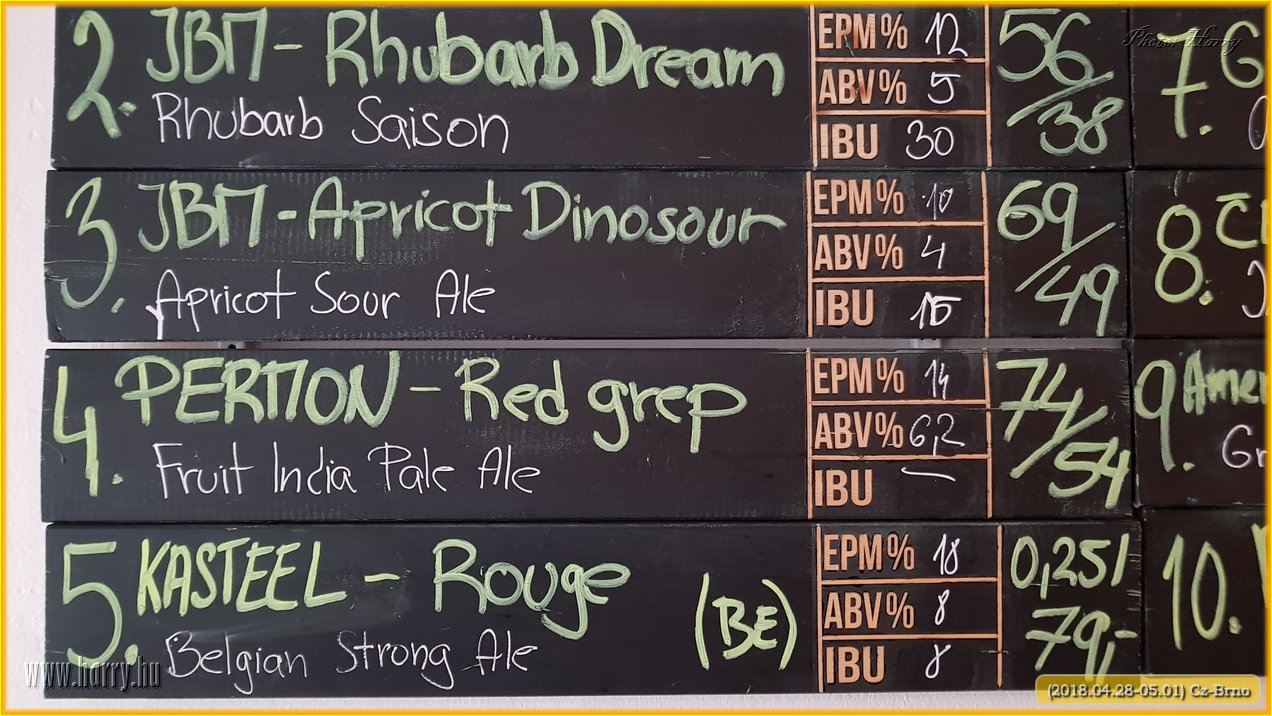 Photo: Harry
2. JBM - Rhubarb Dream
Rhubarb Saison
EPM% 12
ABV% 5
IBU 30
56/38
7. G
3. JBM - Apricot Dinosour
Apricot Sour Ale
EPM% 10
ABV% 4
IBU 15
69/49
8.
4. PERMON - Red grep
Fruit India Pale Ale
EPM% 14
ABV% 6,2
IBU —
74/54
9. Amer
Gr
5. KASTEEL - Rouge (BE)
Belgian Strong Ale
EPM% 18
ABV% 8
IBU 8
0,25l
79,-
10.
www.harry.hu
(2018.04.28-05.01) Cz-Brno